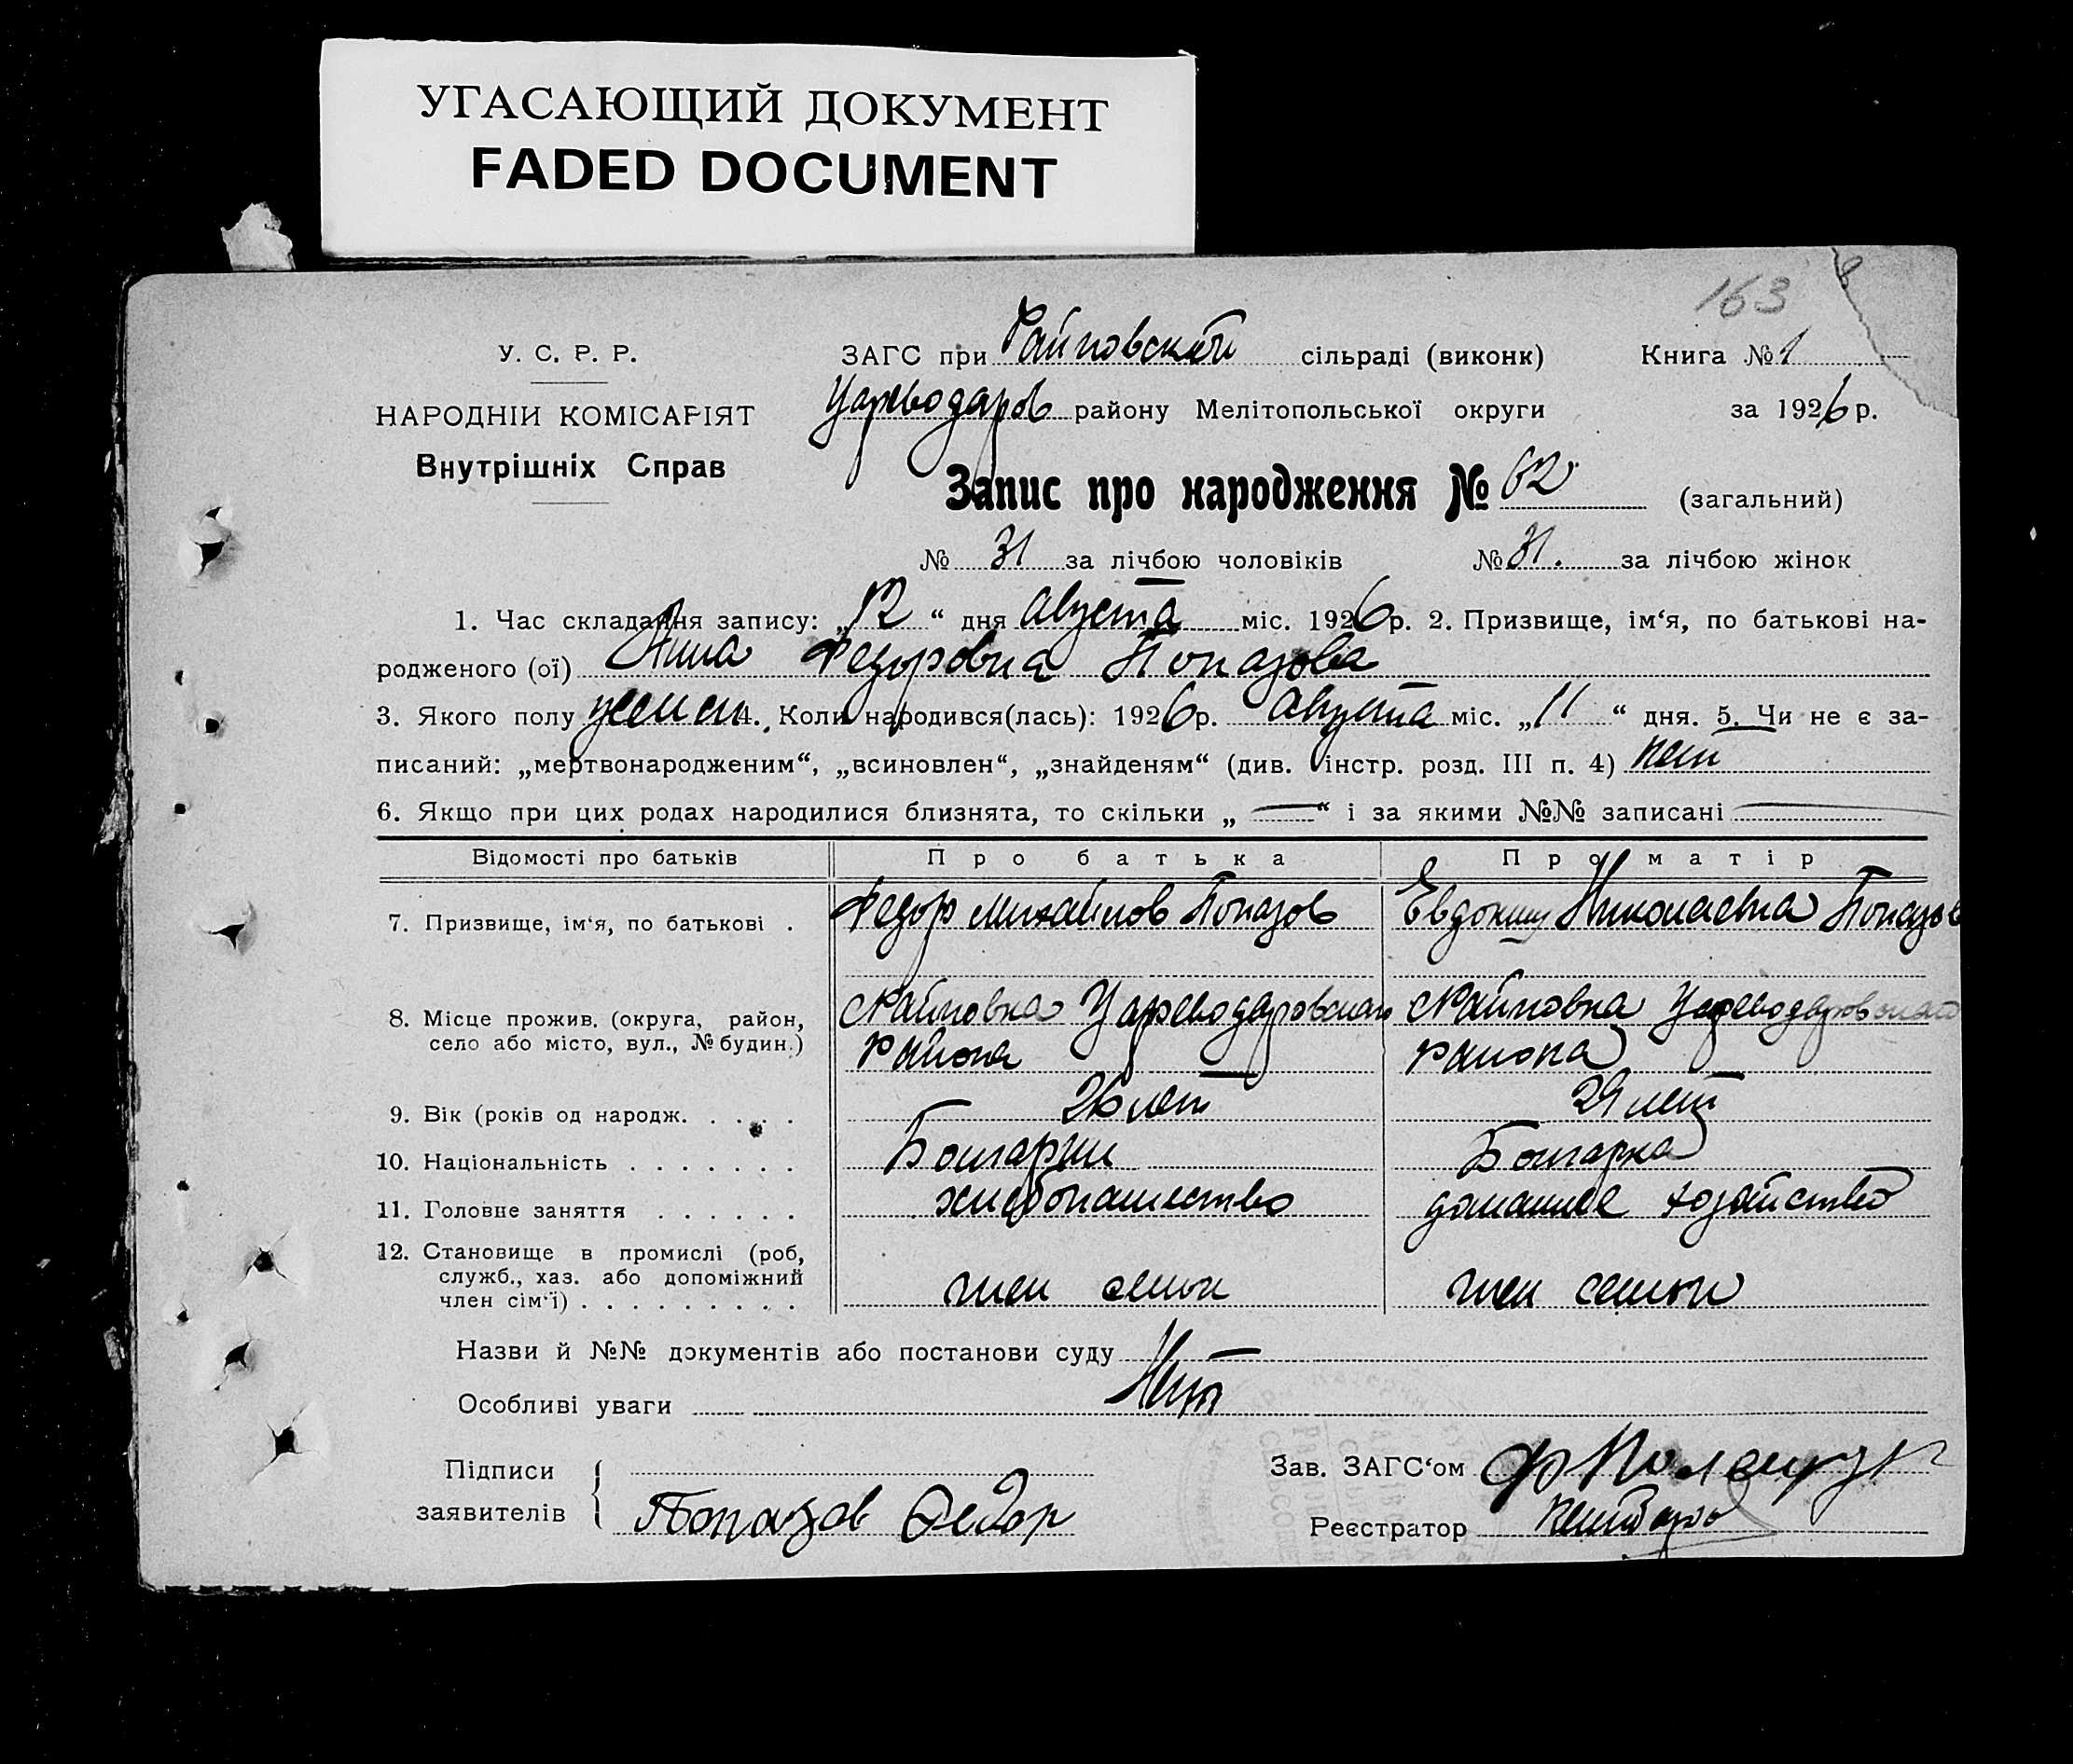 УГАСАЮЩИЙ ДОКУМЕНТ
FADED DOCUMENT
163
У. С. Р. Р.
НАРОДНІЙ КОМІСАРІЯТ
Внутрішніх Справ
ЗАГС при Райновской сільраді (виконк)
Книга № 1
Цареводаров району Мелітопольської округи
за 1926 р.
Запис про народження № 62 (загальний)
№ 31 за лічбою чоловіків № 31. за лічбою жінок
1. Час складання запису: „12“ дня августа міс. 1926 р. 2. Призвище, ім‘я, по батькові на-
родженого (ої) Анна Федоровна Попазова
3. Якого полу женск 4. Коли народився(лась): 1926 р. августа міс. „11“ дня. 5. Чи не є за-
писаний: „мертвонародженим“, „всиновлен“, „знайденям“ (див. інстр. розд. III п. 4) нет
6. Якщо при цих родах народилися близнята, то скільки „ — “ і за якими №№ записані —
Відомості про батьків Про батька Про матір
7. Призвище, ім‘я, по батькові . Федор Михайлов Попазов Евдокия Николаевна Попазов
8. Місце прожив. (округа, район, село або місто, вул., № будин.) Райновка Цареводаровскаго Райновка Цареводаровскаго
района района
9. Вік (років од народж. . . . . 26 лет 29 лет
10. Національність . . . . . . . Болгарин Болгарка
11. Головне заняття . . . . . . хлебопашество домашнее хозяйство
12. Становище в промислі (роб,
служб., хаз. або допоміжний
член сім‘ї) . . . . . . . . . член семьи член семьи
Назви й №№ документів або постанови суду
Особливі уваги Нет
Підписи
заявителів Попазов Федор
Зав. ЗАГС‘ом
Реєстратор